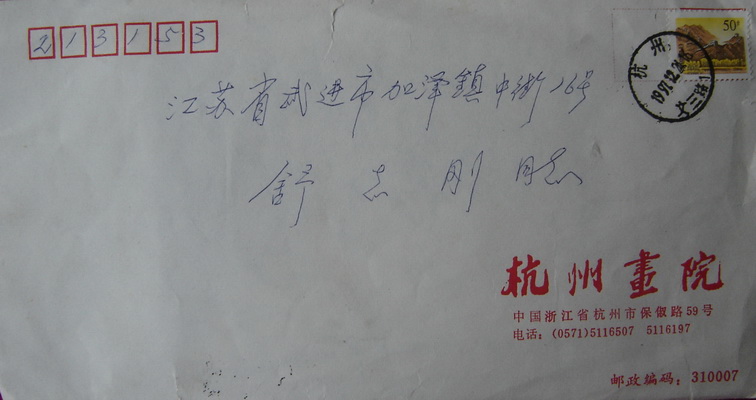 213153
50分
杭州
江苏省武进市加泽镇中街16号
舒志刚同志
杭州畫院
中国浙江省杭州市保俶路59号
电话：(0571)5116507 5116197
邮政编码：310007